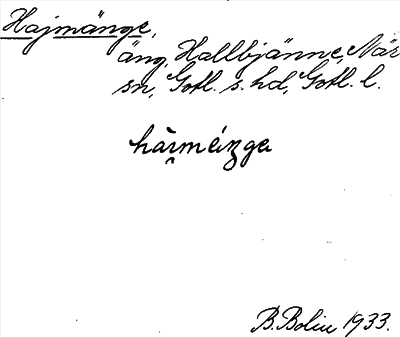 Hajmänge,
äng, Hallbjänne, När
sn, Gotl. s. hd, Gotl. l.
B. Bolin 1933.